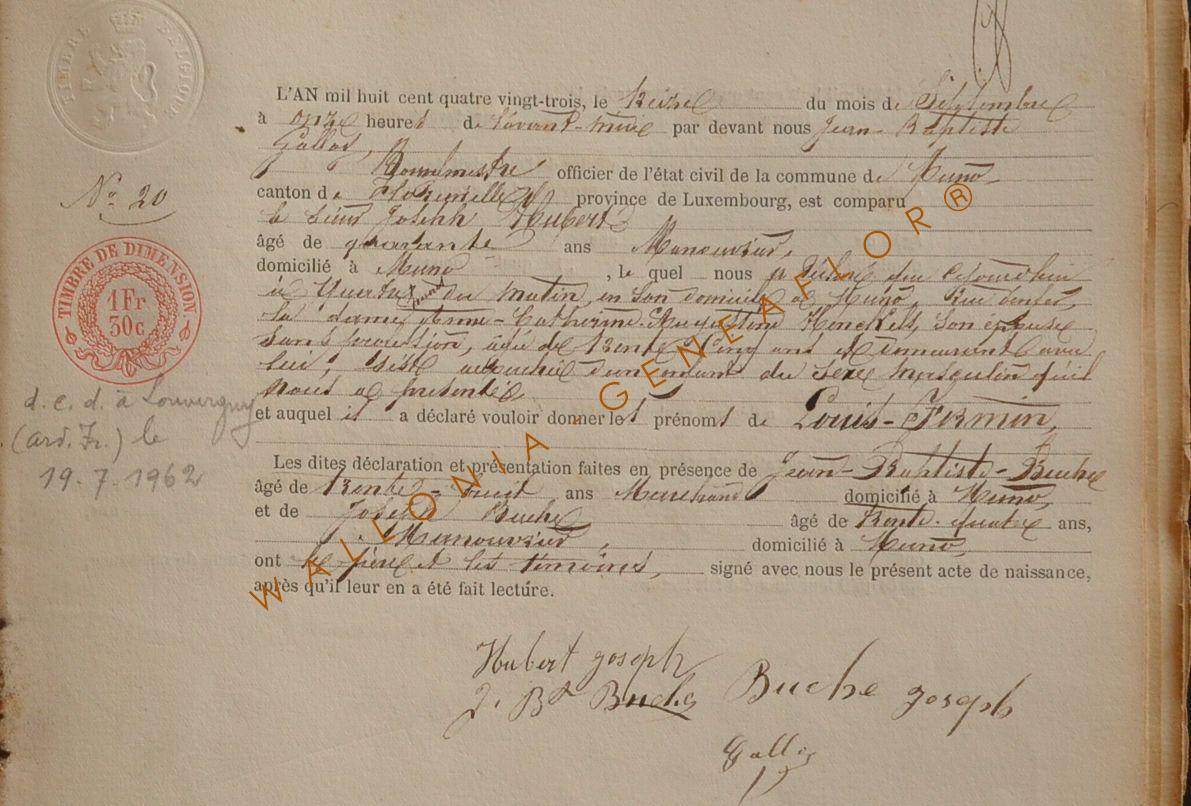 TIMBRE BELGIQUE
L'AN mil huit cent quatre vingt-trois, le treize du mois de Septembre
à onze heures de l'avant-midi par devant nous Jean-Baptiste
Bourgmestre officier de l'état civil de la commune de Muno
canton de Florenville province de Luxembourg, est comparu
le sieur Joseph Hubert
âgé de quarante ans Manouvrier,
domicilié à Muno, le quel nous a déclaré qu'aujourd'hui
à quatre heures du matin, en son domicile à Muno, rue
la dame Anne-Catherine-Augustine Henckels, son épouse
sans profession, âgée de trente cinq ans et demeurant avec
lui, s'est accouchée d'un enfant du sexe masculin qu'il
nous a présenté
et auquel il a déclaré vouloir donner les prénoms de Louis-Firmin,
Les dites déclaration et présentation faites en présence de Jean-Baptiste-Buche
âgé de trente-huit ans Marchand domicilié à Muno,
et de Joseph Buche âgé de trente-quatre ans,
Manouvrier, domicilié à Muno,
ont le père et les témoins, signé avec nous le présent acte de naissance,
après qu'il leur en a été fait lecture.
No 20
TIMBRE DE DIMENSION
1 Fr
30c.
d. c. d. à Louvergny
(ard. Fr.) le
19.7.1962
Hubert joseph
J. Bte Buche
Buche joseph
WALLONIA - GENEAFLOR®